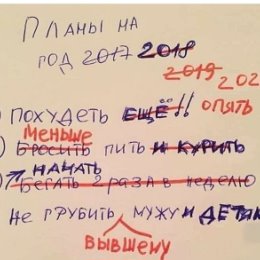 ПЛАНЫ НА
ГОД 2017 2018
2019 202
) ПОХУДЕТЬ ЕЩЁ!! ОПЯТЬ
МЕНЬШЕ
) БРОСИТЬ ПИТЬ И КУРИТЬ
НАЧАТЬ
БЕГАТЬ 2 РАЗА В НЕДЕЛЮ
НЕ ГРУБИТЬ МУЖУ И ДЕТЯМ
БЫВШЕМУ